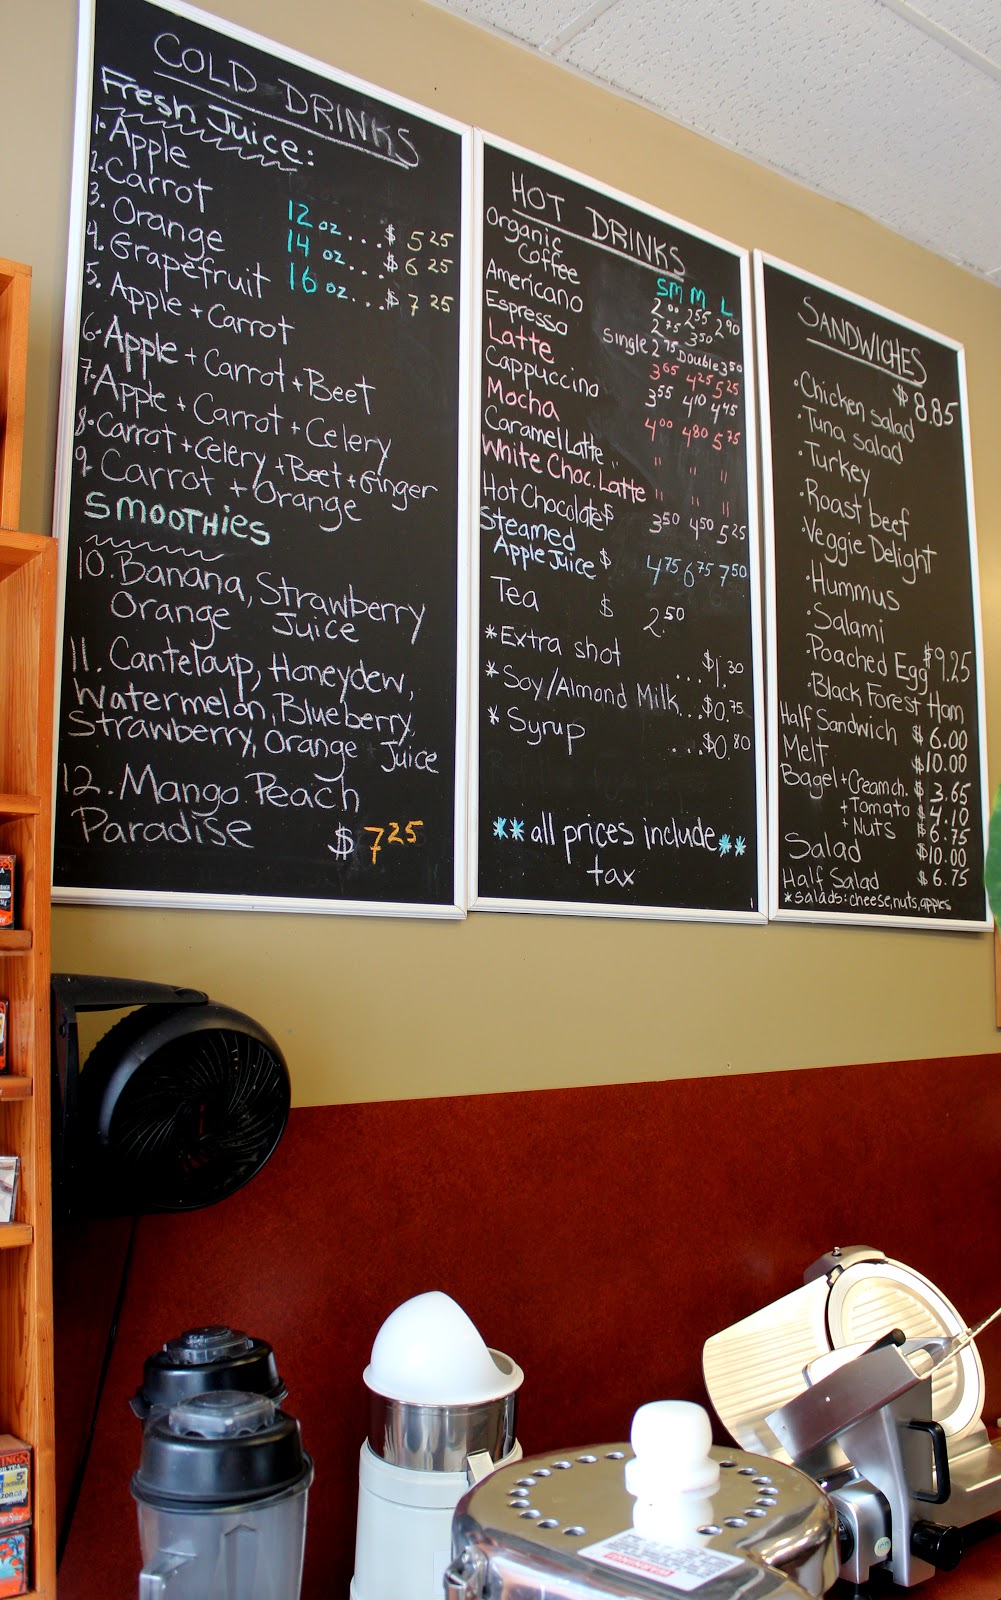 COLD DRINKS
Fresh Juice:
1. Apple
2. Carrot
3. Orange
4. Grapefruit
12 oz...$ 5 25
14 oz...$ 6 25
16 oz...$ 7 25
5. Apple + Carrot
6. Apple + Carrot + Beet
7. Apple + Carrot + Celery
8. Carrot + Celery + Beet + Ginger
9. Carrot + Orange
SMOOTHIES
10. Banana, Strawberry
Orange Juice
11. Canteloup, Honeydew,
Watermelon, Blueberry,
Strawberry, Orange Juice
12. Mango Peach
Paradise $ 7 25
HOT DRINKS
SM M L
Organic
Coffee 2 00 2 55 2 90
Americano 2 75 3 50
Espresso Single 2 75 Double 3 50
Latte 3 65 4 25 5 25
Cappuccino 3 55 4 10 4 45
Mocha 4 00 4 80 5 75
Caramel Latte " " "
White Choc. Latte " " "
Hot Chocolate $ 3 50 4 50 5 25
Steamed
Apple Juice $ 4 75 6 75 7 50
Tea $ 2.50
* Extra shot ...$1.30
* Soy/Almond Milk...$0.75
* Syrup ...$0.80
** all prices include **
tax
SANDWICHES
$8.85
• Chicken salad
• Tuna salad
• Turkey
• Roast beef
• Veggie Delight
• Hummus
• Salami
• Poached Egg $9.25
• Black Forest Ham
Half Sandwich $6.00
Melt $10.00
Bagel + Cream ch. $3.65
+ Tomato $4.10
+ Nuts $6.75
Salad $10.00
Half Salad $6.75
* salads: cheese, nuts, apples
WARNING